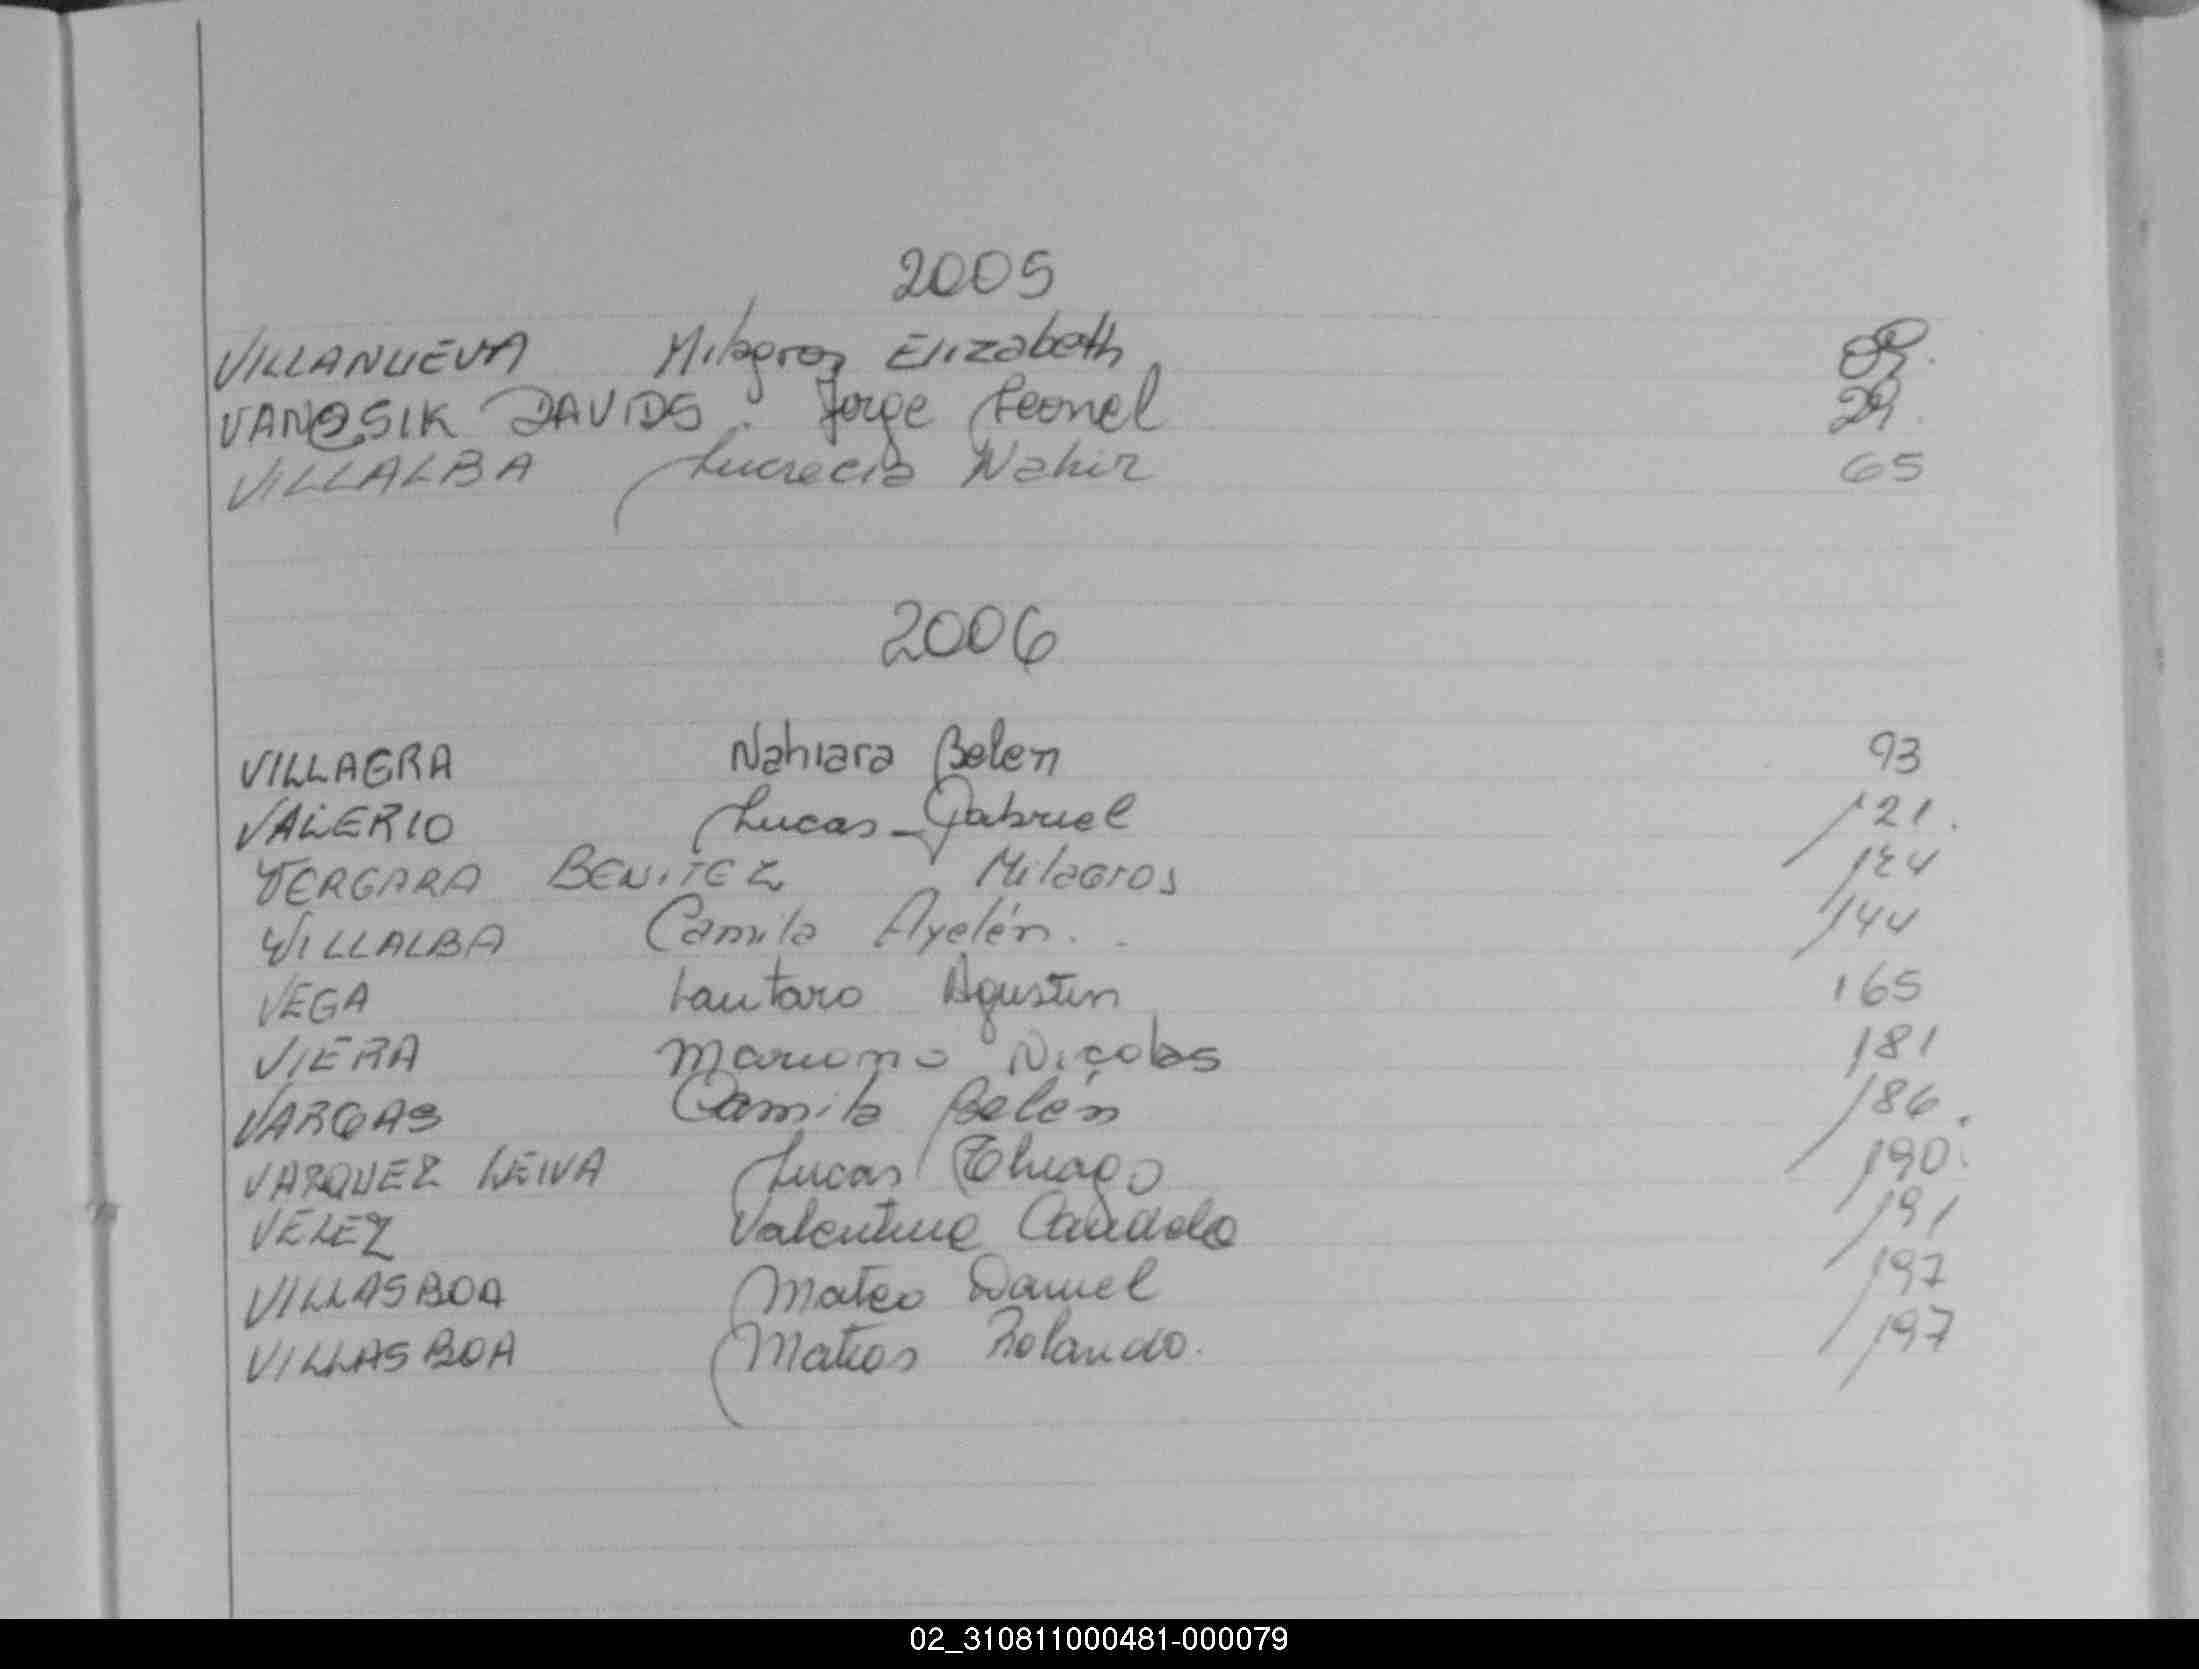 2005
VILLANUEVA Milagros Elizabeth 09.
VANOSIK DAVIDS. Jorge Leonel 29.
VILLALBA Lucrecia Nahir 65
2006
VILLAGRA Nahiara Belen 93
VALERIO Lucas Gabriel 121.
VERGARA BENITEZ Milagros 124
VILLALBA Camila Ayelén. 144
VEGA Lautaro Agustin 165
VIERA Mariano Nicolas 181
VARGAS Camila Belén 186.
VARQUEZ LEIVA Lucas Thiago 190.
VELEZ Valentina Candela 191
VILLASBOA Mateo Daniel 197
VILLASBOA Matias Rolando. 197
02_310811000481-000079